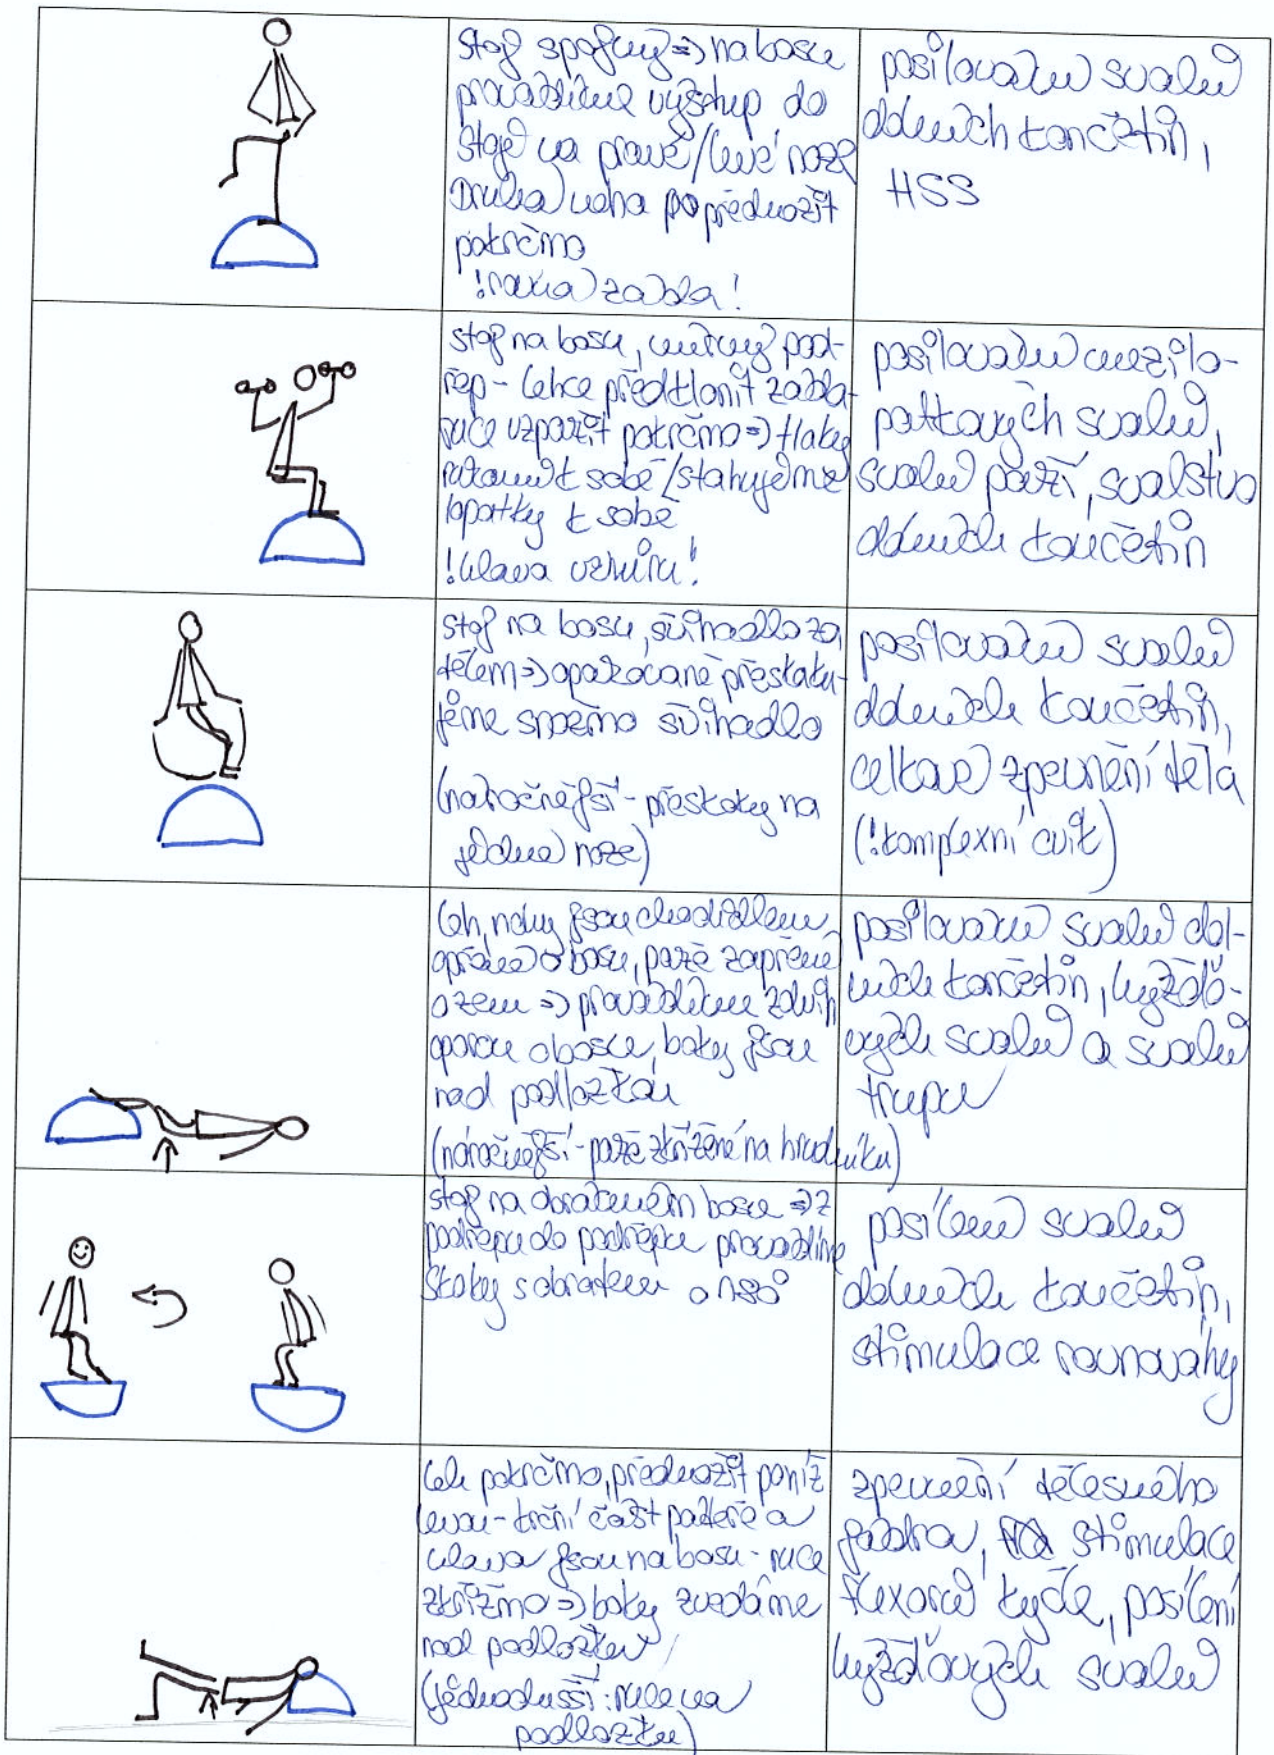 stoj spojný => na bosu
provádíme výstup do
stoje na pravé/levé noze
Druhá noha přednožit
pokrčmo
!rovná záda!
posilování svalů
dolních končetin,
HSS
stoj na bosu, mírný pod-
řep - lehce předklonit záda
ruce vzpažit pokrčmo => tlaky
rukama k sobě/stahujeme
lopatky k sobě
!hlava vzhůru!
posilování mezilo-
patkových svalů,
svalů paží, svalstvo
dolních končetin
stoj na bosu, švihadlo za
tělem => opakovaně přeskaku-
jeme snožmo švihadlo
(náročnější - přeskoky na
jedné noze)
posilování svalů
dolních končetin,
celkové zpevnění těla
(!komplexní cvik)
leh, nohy jsou chodidlem
opřené o bosu, paže zapřené
o zem => provádíme zdvih
oporou o bosu, boky jsou
nad podložkou
(náročnější - paže zkřížené na hrudníku)
posilování svalů dol-
ních končetin, hýžďo-
vých svalů a svalů
trupu
stoj na obráceném bosu => z
podřepu do podřepu provádíme
skoky s obratem o 180°
posílení svalů
dolních končetin,
stimulace rovnováhy
leh pokrčmo, přednožit poníž
levou - krční část páteře a
hlava jsou na bosu - ruce
zkřižmo => boky zvedáme
nad podložku
(jednodušší: ruce na
podložku)
zpevnění tělesného
jádra, stimulace
flexorů kyčle, posílení
hýžďových svalů